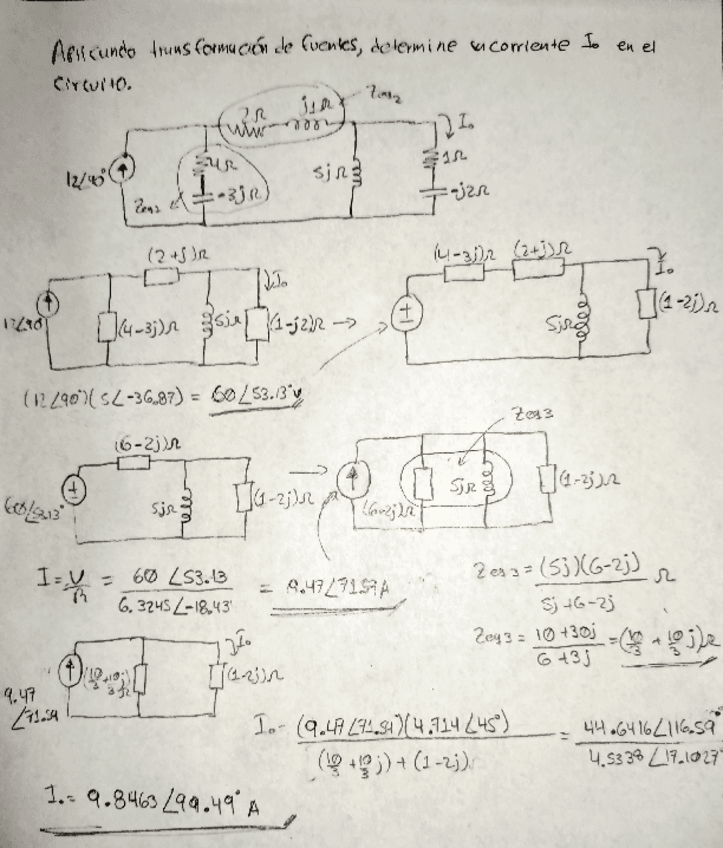 Aplicando transformación de fuentes, determine la corriente I₀ en el
circuito.
Zeq₂
2Ω j1Ω
I₀
12∠90° 4Ω 5jΩ 1Ω
-3jΩ -j2Ω
(2+j)Ω (4-3j)Ω (2+j)Ω
I₀ I₀
12∠90° (4-3j)Ω 5jΩ (1-j2)Ω → 5jΩ (1-2j)Ω
(12∠90°)(5∠-36,87) = 60∠53.13°V
Zeq3
(6-2j)Ω
60∠53.13° 5jΩ (1-2j)Ω (6-2j)Ω 5jΩ (1-2j)Ω
I = V/R = 60∠53.13 / 6.3245∠-18,43 = 9.47∠71.57A
Zeq3 = (5j)(6-2j) / 5j+6-2j Ω
Zeq3 = 10+30j / 6+3j = (10/3 + 10/3 j)Ω
I₀
9.47∠71.54 (10/3+10/3j)Ω (1-2j)Ω
I₀ = (9.47∠71.54)(4.714∠45°) / (10/3 + 10/3 j) + (1-2j) = 44.6416∠116.59° / 4.5338∠17.1027
I₀ = 9.8463∠99.49° A